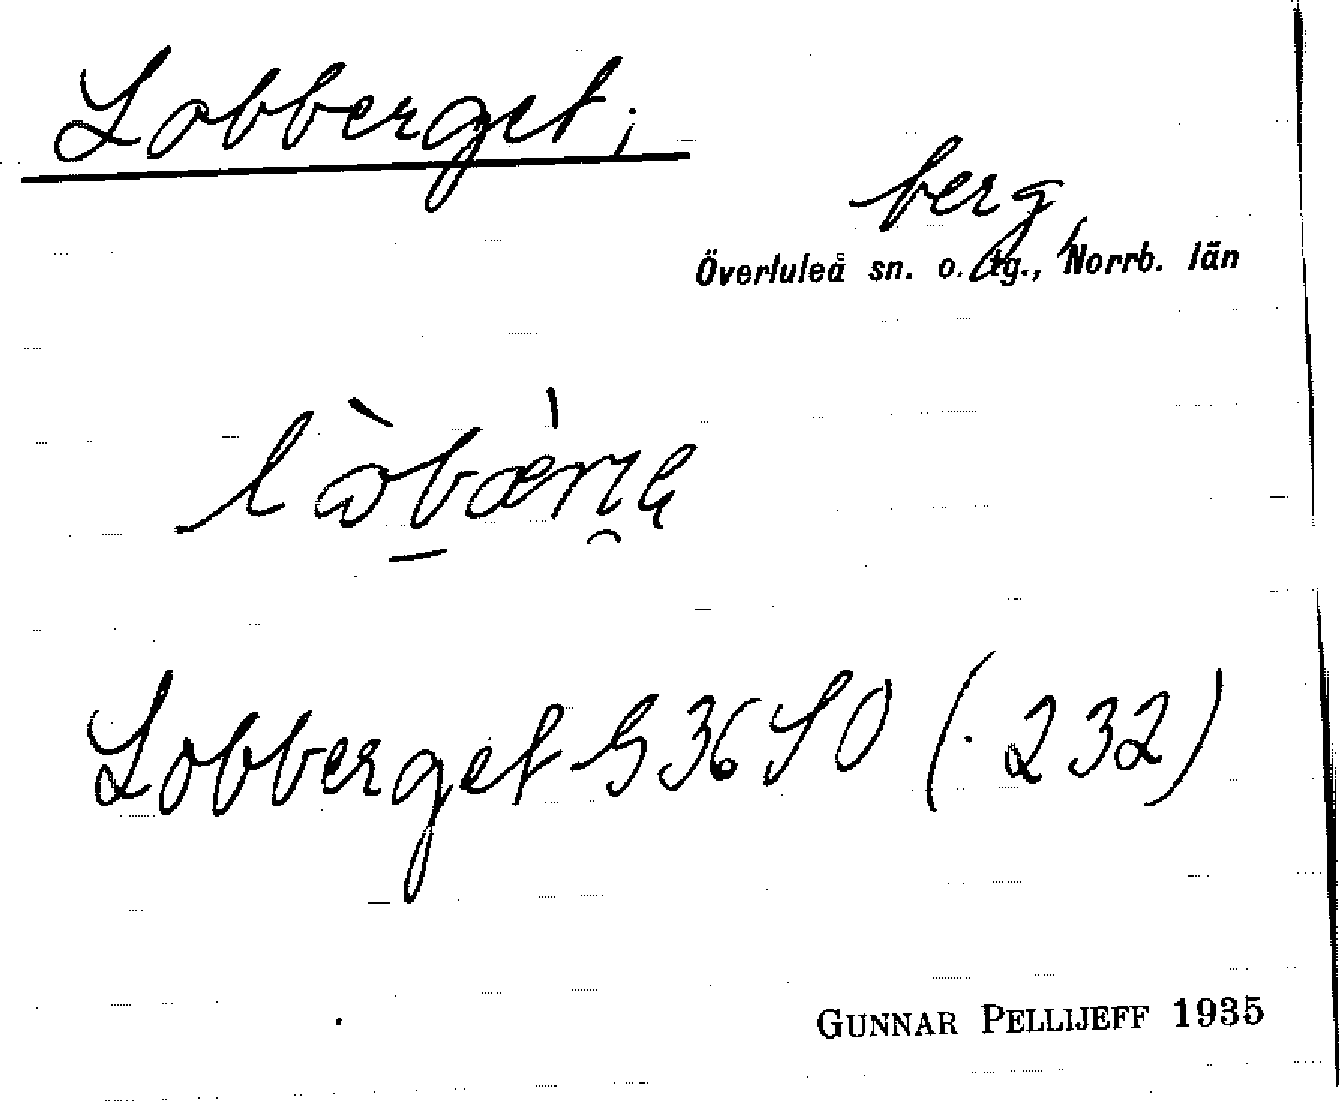 Lobberget;
berg,
Överluleå sn. o. tg., Norrb. län
Lobberget S 36 SO (. 232)
GUNNAR PELLIJEFF 1935